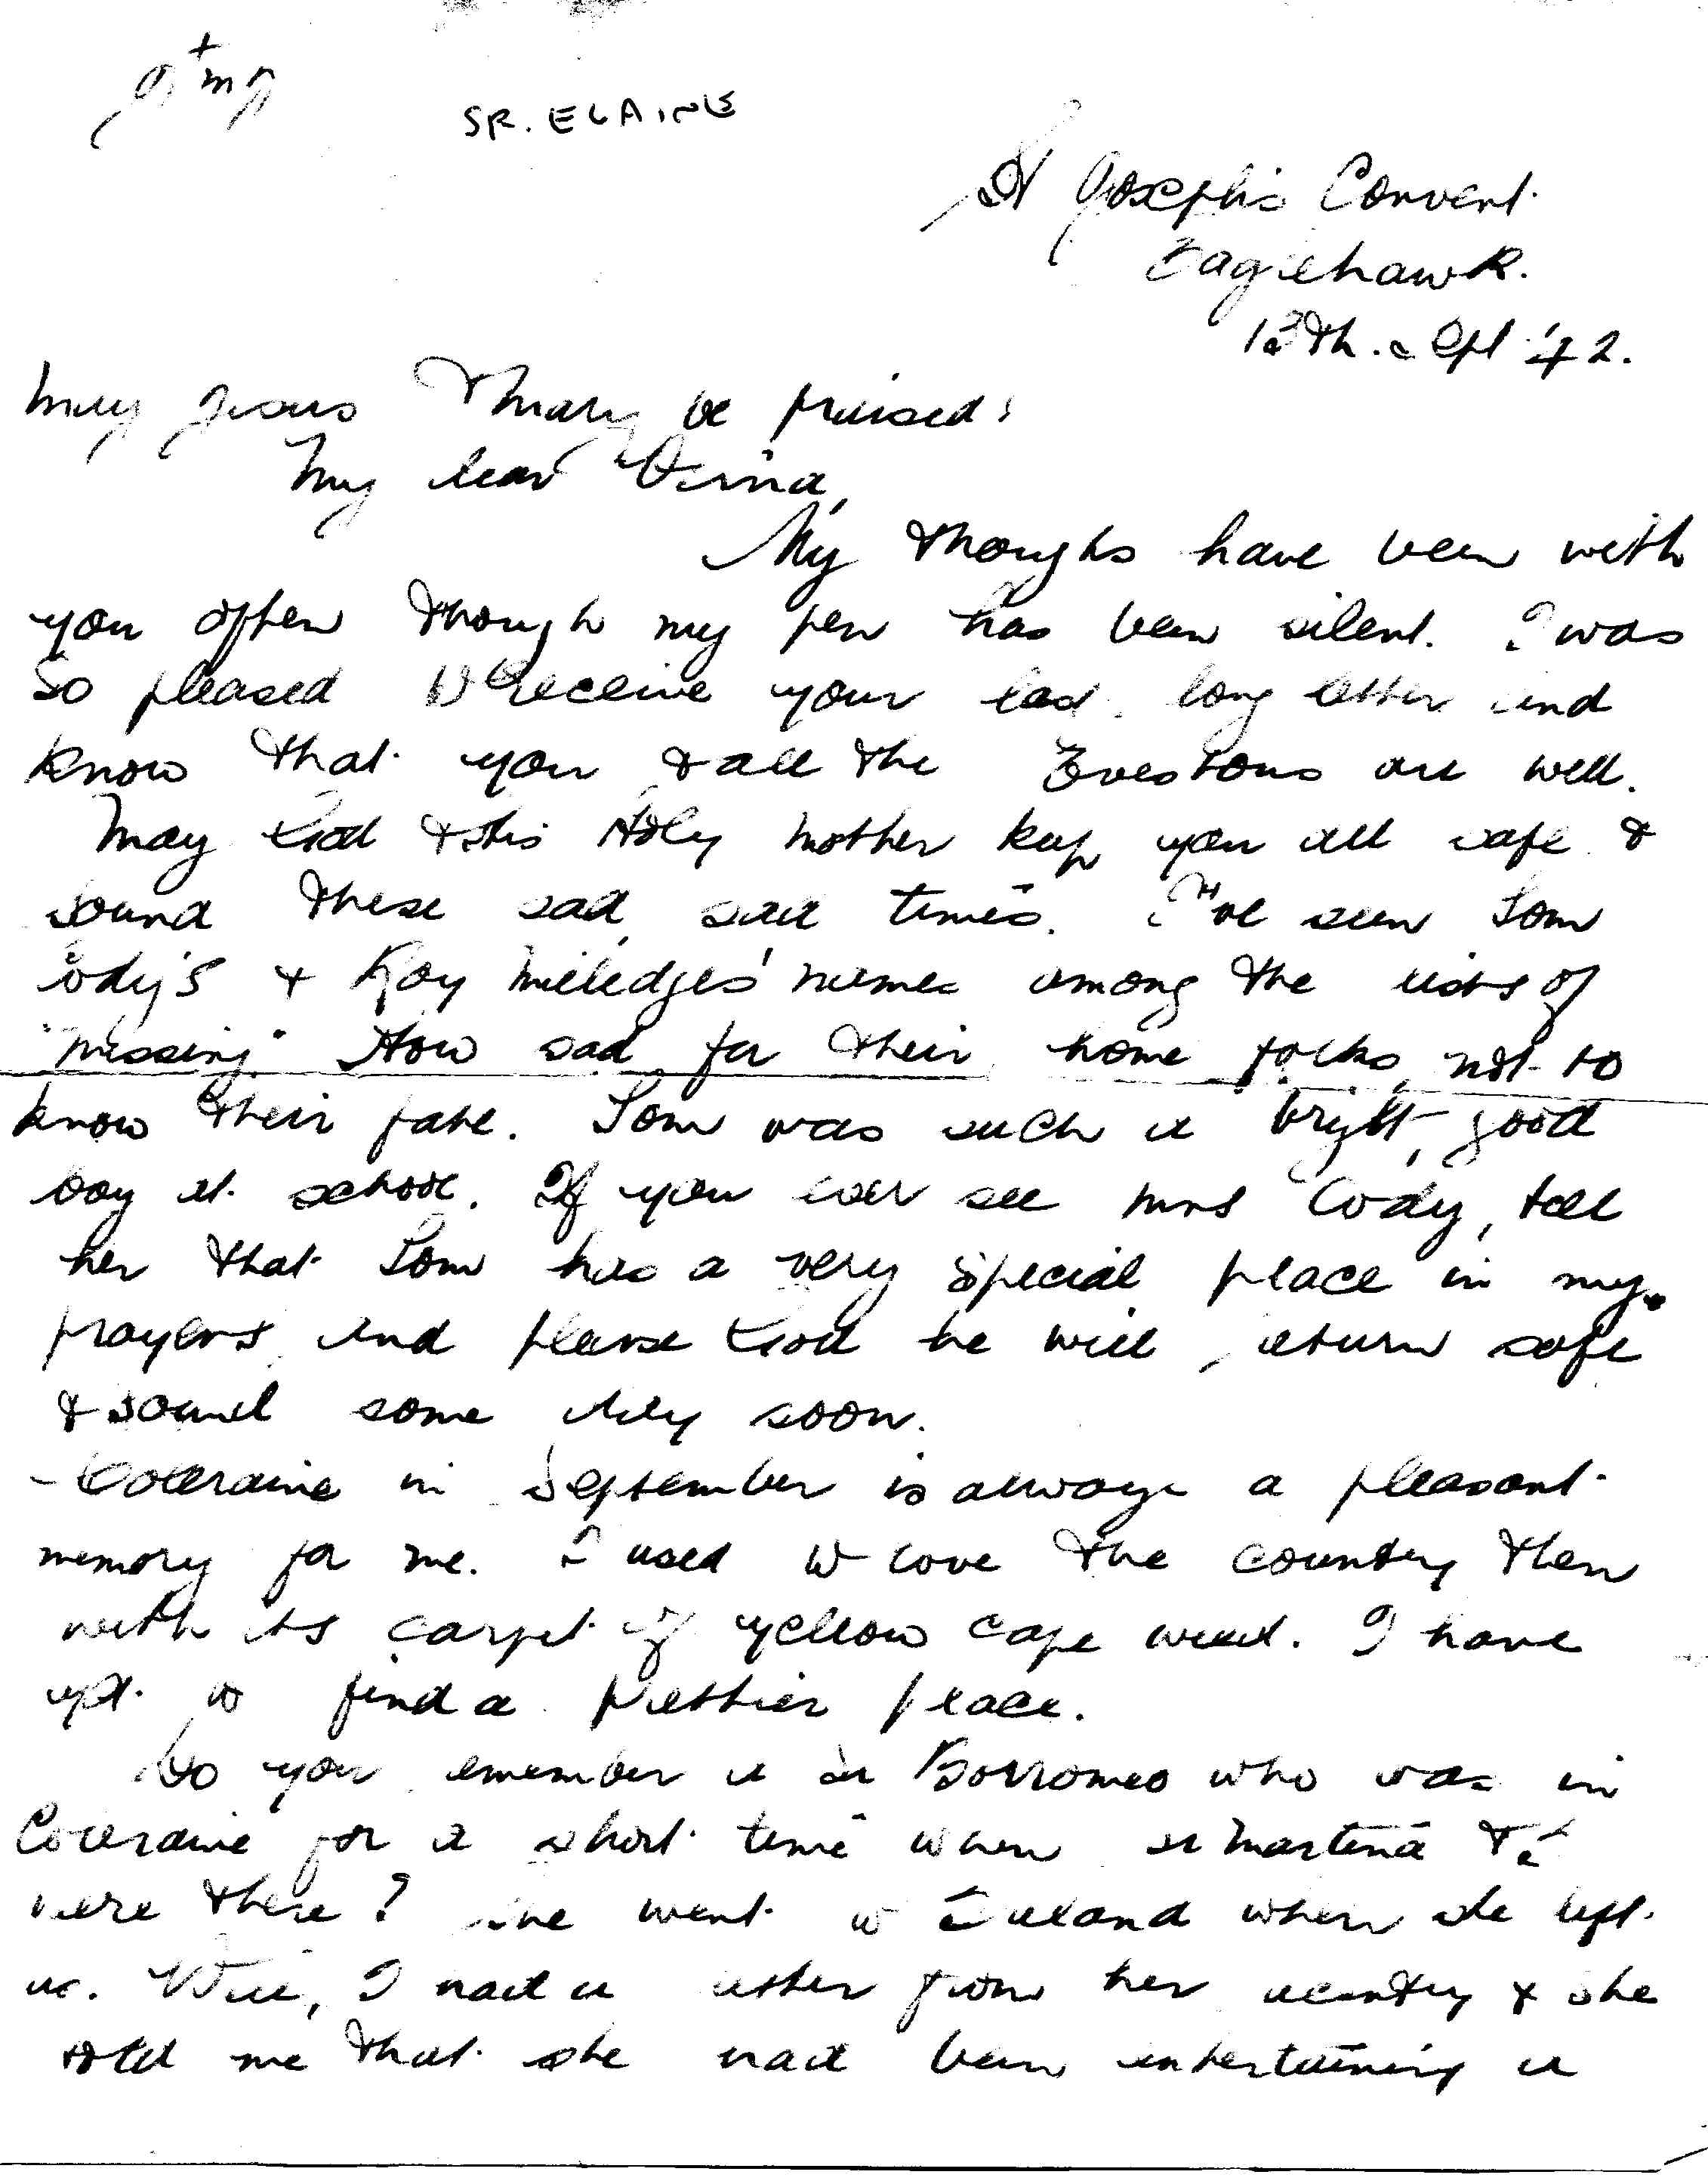 J+MJ
SR. ELAINE
St Joseph's Convent.
Eaglehawk.
Sept '42.
May Jesus & Mary be praised!
My dear
My thoughs have been with
you often though my pen has been silent. I was
so pleased to receive your last long letter and
know that you & all the are well.
May God & His Holy Mother keep you all safe &
sound these sad, sad times. I've seen Tom
Cody's & Roy Milledges' names among the lists of
"missing" How sad for their home folks, not to
know their fate. Tom was such a bright, good
boy at school. If you ever see Mrs Cody, tell
her that Tom has a very special place in my
prayers and please God he will return safe
& sound some day soon.
- Coleraine in September is always a pleasant
memory for me. I used to love the country then
with its carpet of yellow cape weed. I have
yet to find a prettier place.
Do you remember a Sr Borromeo who was in
Coleraine for a short time when Sr Martina & I
were there? She went to Ireland when she left
us. Well, I had a letter from her recently & she
told me that she had been entertaining a